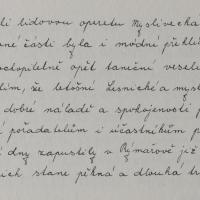 li lidovou operetu Myslivecka
né části byla i módní přehlí
ochopitelně opět taneční vesel
ím, že letošní Lesnické a mysl
dobré náladě a spokojenosti p
í pořadatelům i účastníkům p
dny zapustily v Rýmařově již
ich stane pěkná a dlouhá tr